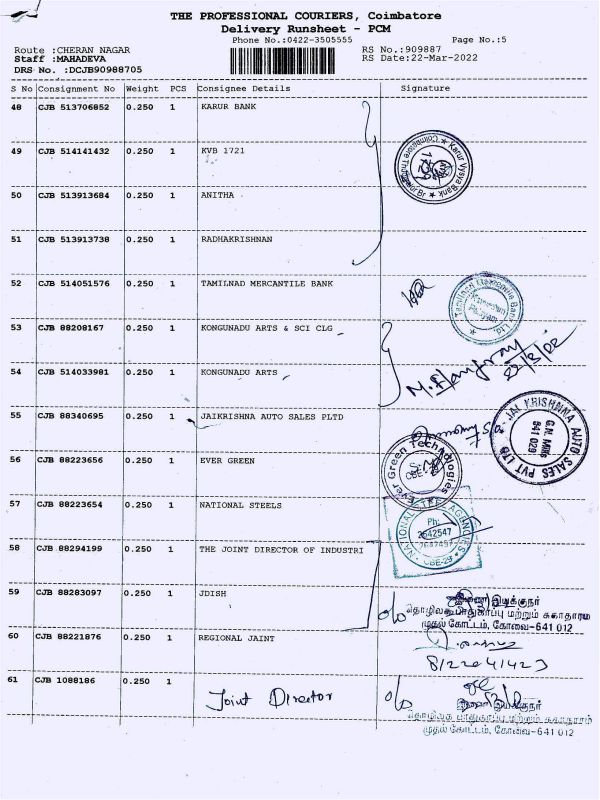 THE PROFESSIONAL COURIERS, Coimbatore
Delivery Runsheet - PCM
Phone No.:0422-3505555 Page No.:5
Route :CHERAN NAGAR RS No.:909887
Staff :MAHADEVA RS Date:22-Mar-2022
DRS No. :DCJB90988705
S No Consignment No Weight PCS Consignee Details Signature
48 CJB 513706852 0.250 1 KARUR BANK
49 CJB 514141432 0.250 1 KVB 1721
Karur Vysya Bank
50 CJB 513913684 0.250 1 ANITHA
51 CJB 513913738 0.250 1 RADHAKRISHNAN
52 CJB 514051576 0.250 1 TAMILNAD MERCANTILE BANK
Tamilnad Mercantile Bank Ltd.
53 CJB 88208167 0.250 1 KONGUNADU ARTS & SCI CLG
54 CJB 514033981 0.250 1 KONGUNADU ARTS
55 CJB 88340695 0.250 1 JAIKRISHNA AUTO SALES PLTD
JAI KRISHNAA AUTO SALES PVT LTD
G.N. Mills
641 029
56 CJB 88223656 0.250 1 EVER GREEN
Ever Green Technologies
CBE
57 CJB 88223654 0.250 1 NATIONAL STEELS
NATIONAL AGENCIES
Ph:
2642547
2642497
CBE-29
58 CJB 88294199 0.250 1 THE JOINT DIRECTOR OF INDUSTRI
59 CJB 88283097 0.250 1 JDISH
இணை இயக்குநர்
தொழிலக பாதுகாப்பு மற்றும் சுகாதாரம்
முதல் கோட்டம், கோவை-641 012
60 CJB 88221876 0.250 1 REGIONAL JAINT
8122041423
61 CJB 1088186 0.250 1 Joint Director
இணை இயக்குநர்
தொழிலக பாதுகாப்பு மற்றும் சுகாதாரம்
முதல் கோட்டம், கோவை-641 012